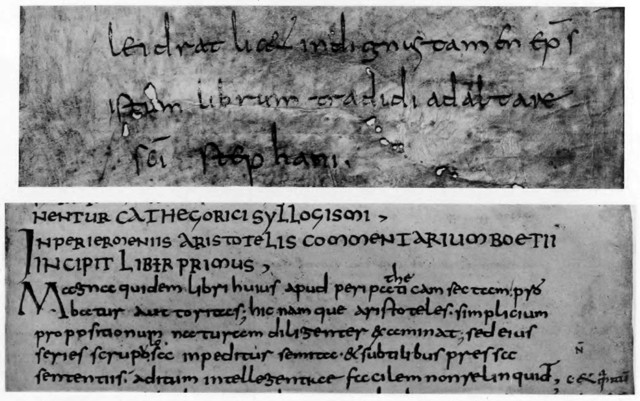 leidrat licet indignus tamen ep̄s
istum librum tradidi ad altare
sc̄i stephani.
NENTUR CATHEGORICI SYLLOGISMI,
IN PERIERMENIIS ARISTOTELIS COMMENTARIUM BOETII
INCIPIT LIBER PRIMUS,
the
Magna quidem libri huius apud peripaticam sectam; pro
batur auctoritas; hic namque aristoteles; simplicium
propositionum naturam diligenter &caminat; sed eius
series scruposa inpeditur semita; & subtilibus pressa
sententiis; aditum intellegentiae facilem non relinquid,